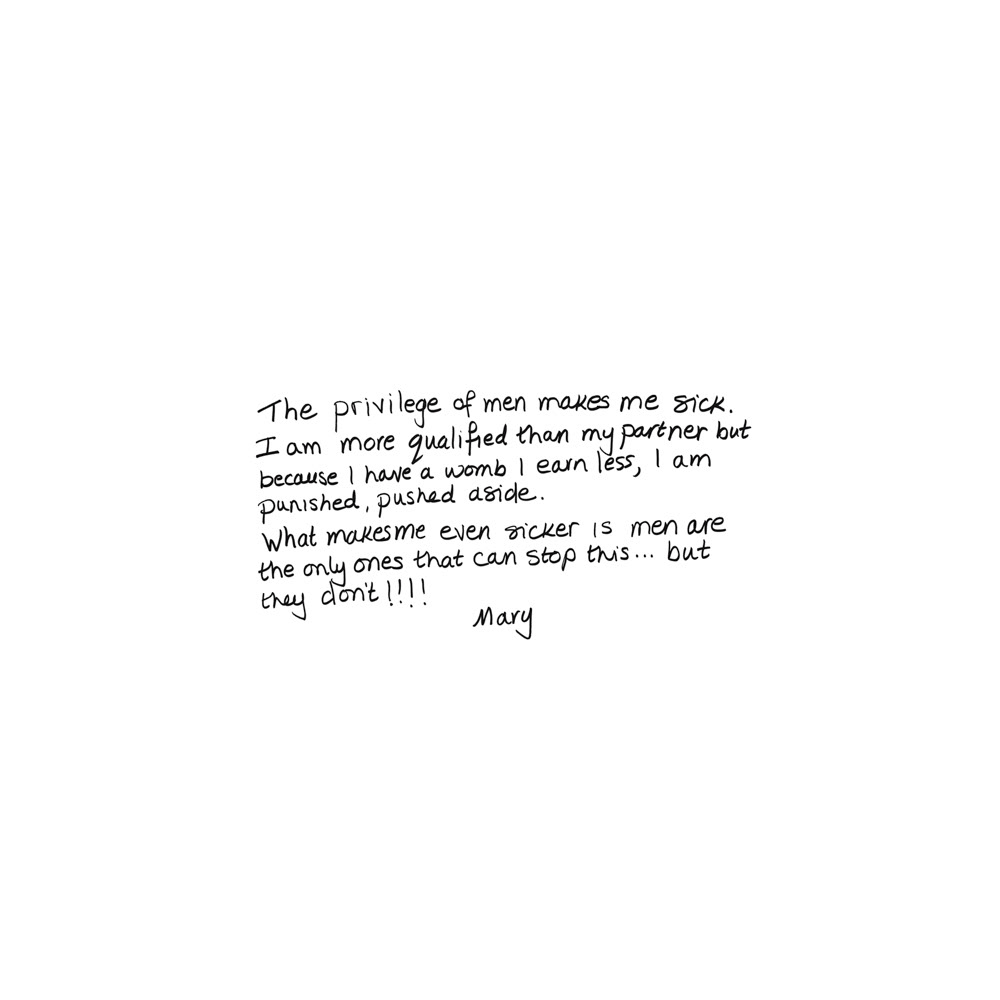 The privilege of men makes me sick.
I am more qualified than my partner but
because I have a womb I earn less, I am
punished, pushed aside.
What makes me even sicker is men are
the only ones that can stop this... but
they don't!!!!
Mary